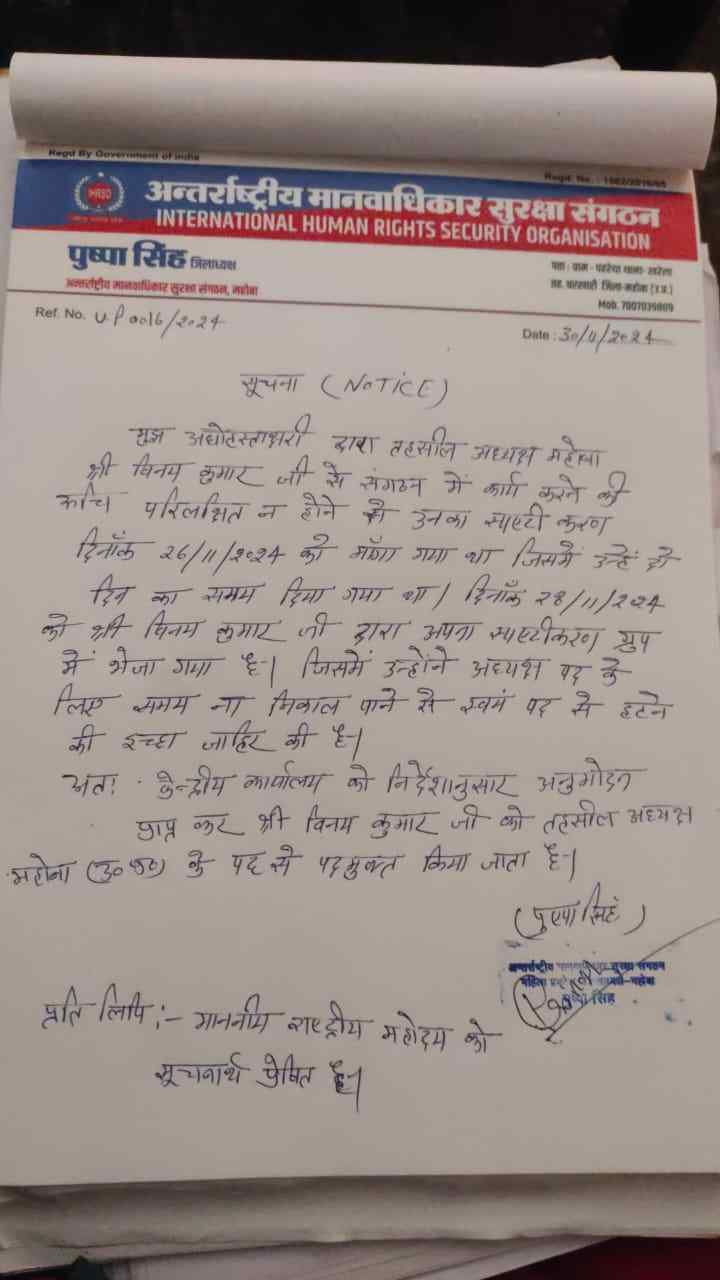 Regd By Government of India
Regd. No. : 1662/2016/65
IHRSO
अन्तर्राष्ट्रीय मानवाधिकार सुरक्षा संगठन
INTERNATIONAL HUMAN RIGHTS SECURITY ORGANISATION
पुष्पा सिंह जिलाध्यक्ष
अन्तर्राष्ट्रीय मानवाधिकार सुरक्षा संगठन, महोबा
पता : ग्राम - पहरेथा थाना- खरेला
तह. चरखारी जिला-महोबा (उ.प्र.)
Mob. 7007039809
Ref. No. U.P 0016/2024
Date : 30/11/2024
सूचना (NOTICE)
मुझ अधोहस्ताक्षरी द्वारा तहसील अध्यक्ष महोबा
श्री विनय कुमार जी से संगठन में कार्य करने की
रूचि परिलक्षित न होने से उनका स्पष्टीकरण
दिनाँक 26/11/2024 को माँगा गया था जिसमें उन्हें दो
दिन का समय दिया गया था। दिनाँक 28/11/2024
को श्री विनय कुमार जी द्वारा अपना स्पष्टीकरण ग्रुप
में भेजा गया है। जिसमें उन्होंने अध्यक्ष पद के
लिए समय ना निकाल पाने से स्वयं पद से हटने
की इच्छा जाहिर की है।
अतः केन्द्रीय कार्यालय को निर्देशानुसार अनुमोदन
प्राप्त कर श्री विनय कुमार जी को तहसील अध्यक्ष
महोबा (उ० प्र०) के पद से पदमुक्त किया जाता है।
(पुष्पा सिहं)
अन्तर्राष्ट्रीय सुरक्षा संगठन
महिला महोबा
सिंह
प्रति लिपि :- माननीय राष्ट्रीय महोदय को
सूचनार्थ प्रेषित है।